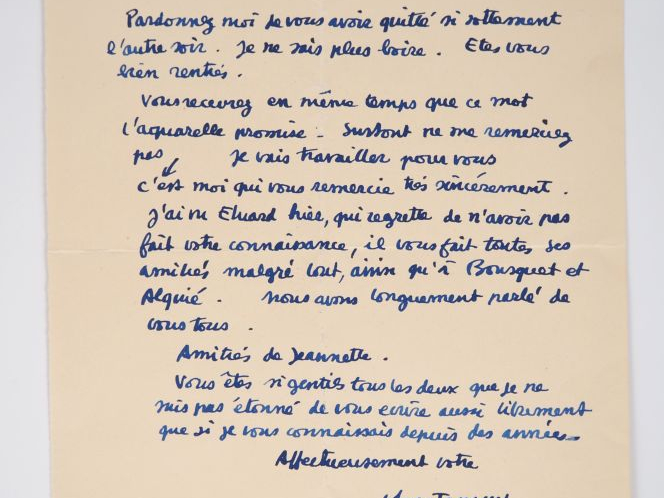 Pardonnez moi de vous avoir quitté si sottement
l'autre soir. Je ne sais plus boire. Etes vous
bien rentrés.
Vous recevrez en même temps que ce mot
l'aquarelle promise - Surtout ne me remerciez
pas Je vais travailler pour vous
c'est moi qui vous remercie très sincèrement.
J'ai vu Eluard hier, qui regrette de n'avoir pas
fait votre connaissance, il vous fait toutes ses
amitiés malgré tout, ainsi qu'à Bousquet et
Alquié. nous avons longuement parlé de
vous tous.
Amitiés de Jeannette.
Vous êtes si gentils tous les deux que je ne
suis pas étonné de vous ecrire aussi librement
que si je vous connaissais depuis des années-
Affectueusement votre